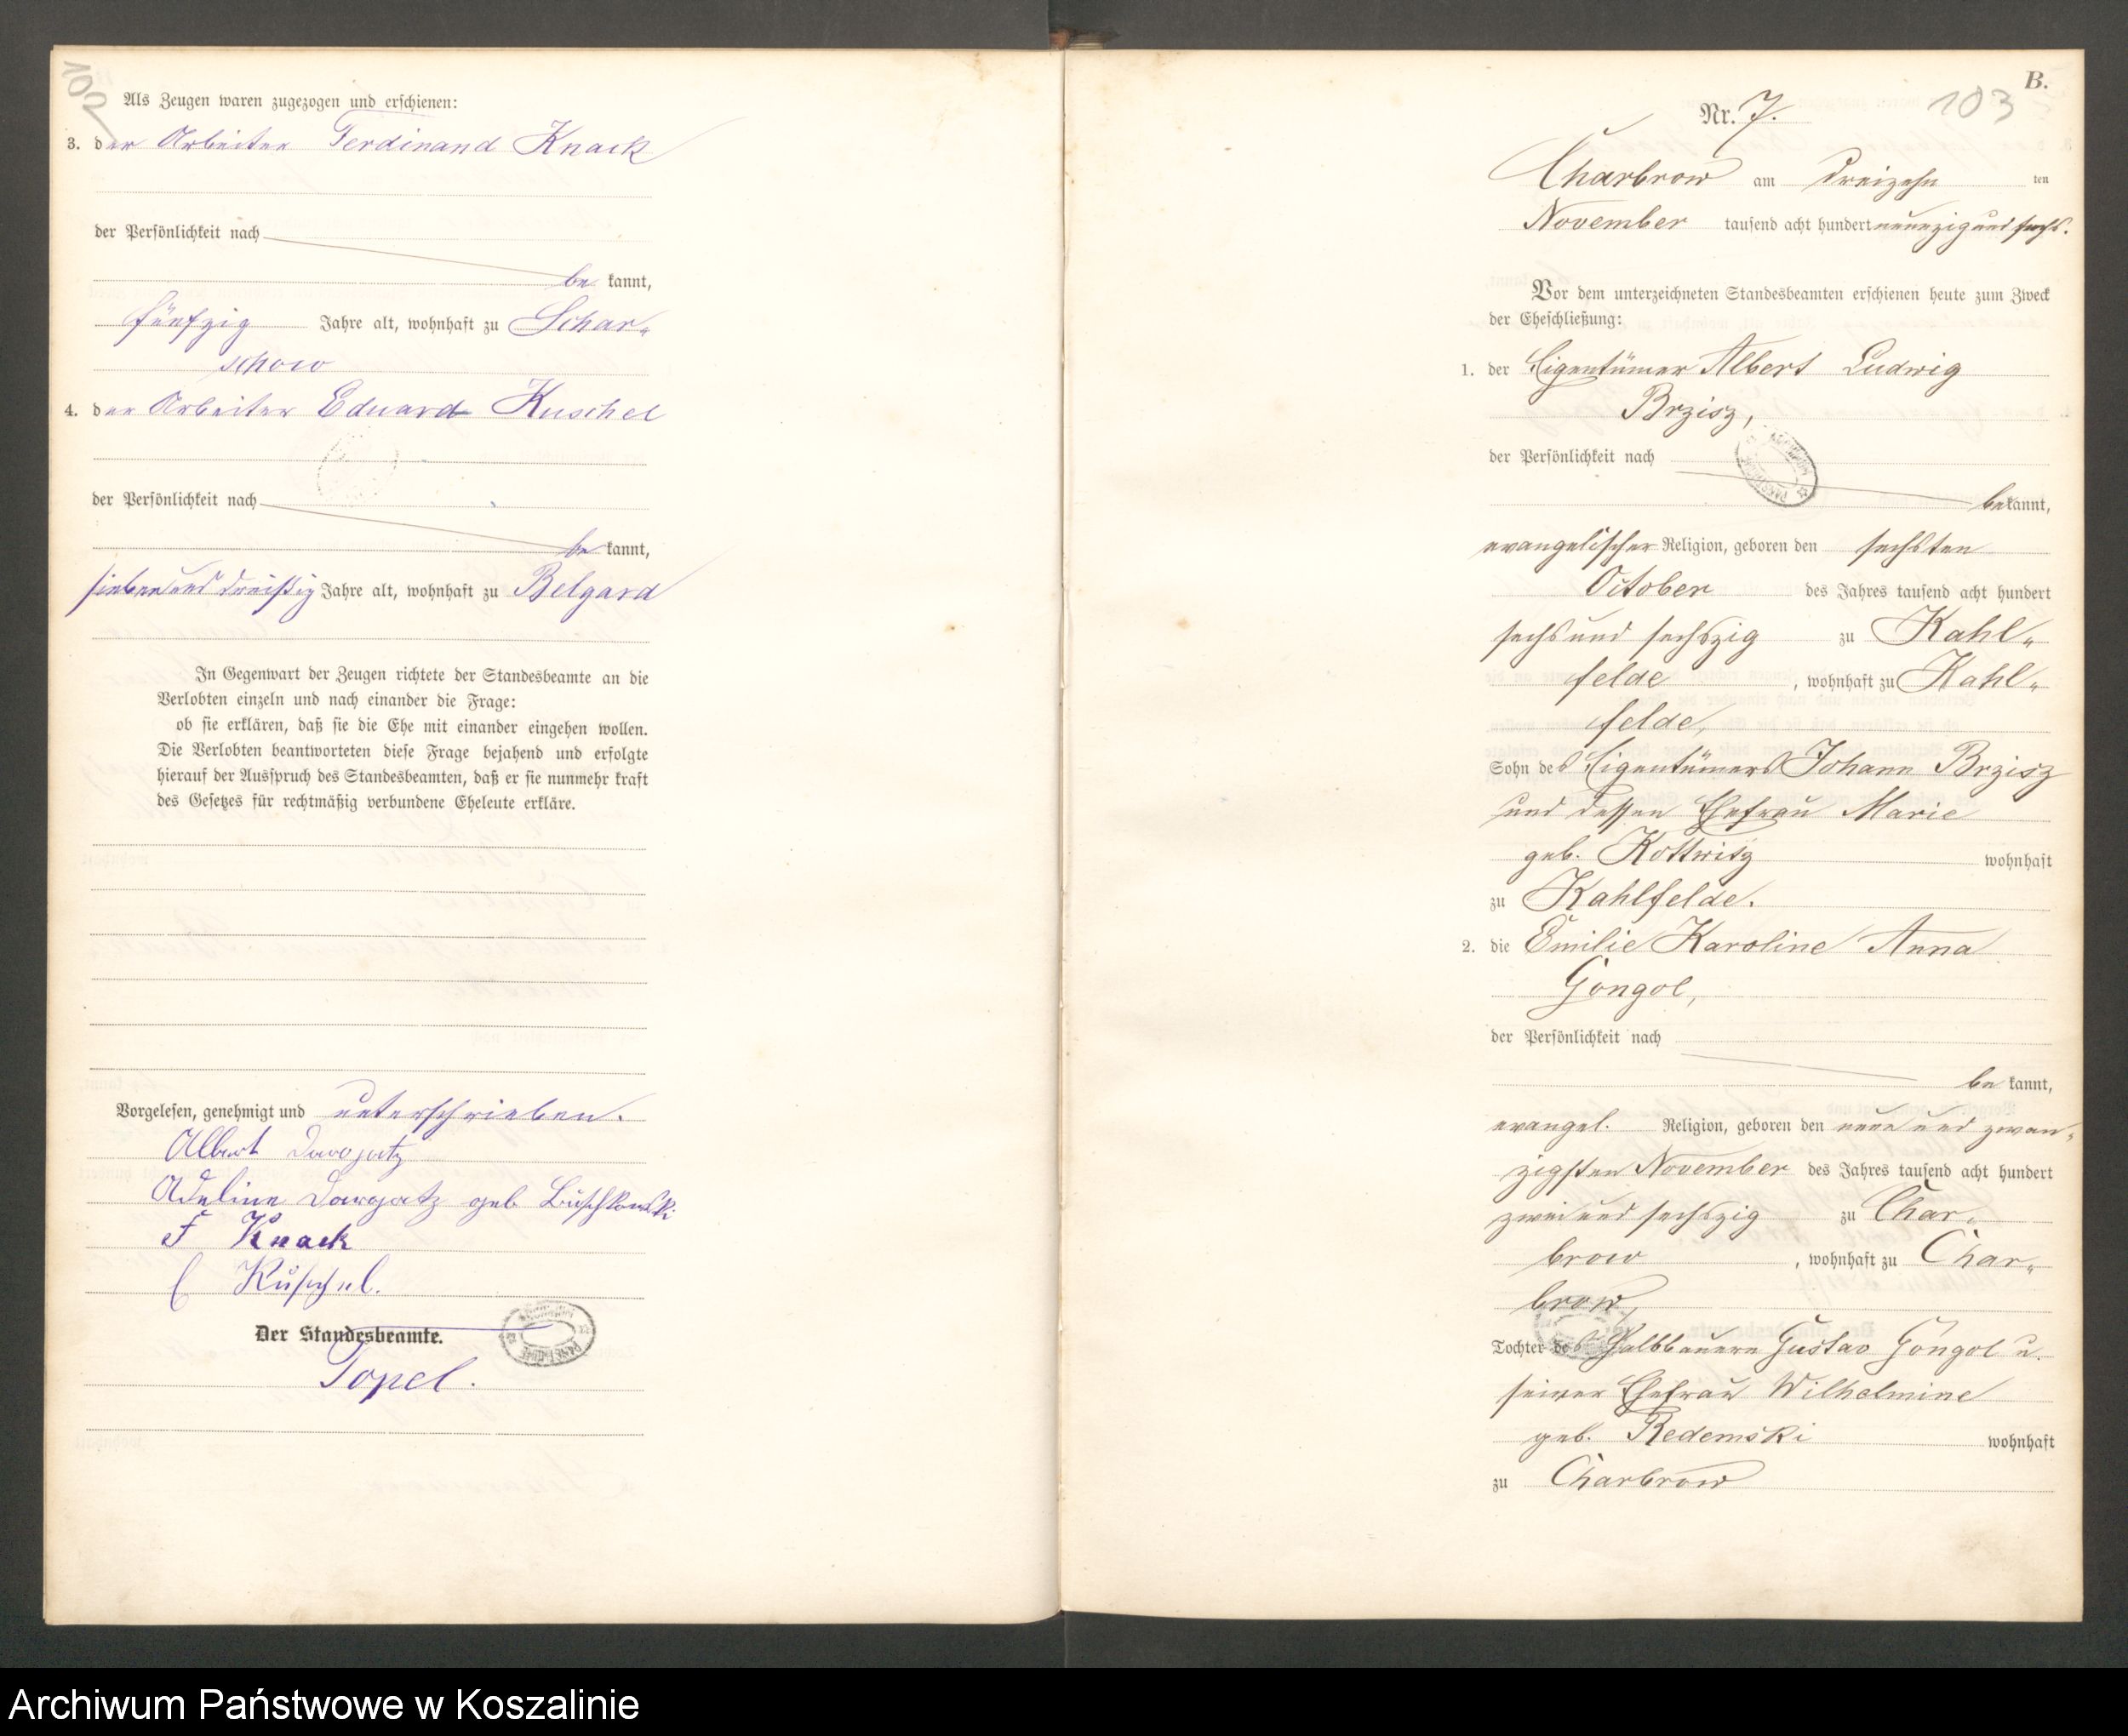 102
Als Zeugen waren zugezogen und erschienen:
3. der Arbeiter Ferdinand Knack
der Persönlichkeit nach
be kannt,
fünfzig Jahre alt, wohnhaft zu Schar„
schow
4. der Arbeiter Eduard Kuschel
der Persönlichkeit nach
be kannt,
siebenunddreißig Jahre alt, wohnhaft zu Belgard
In Gegenwart der Zeugen richtete der Standesbeamte an die
Verlobten einzeln und nach einander die Frage:
ob sie erklären, daß sie die Ehe mit einander eingehen wollen.
Die Verlobten beantworteten diese Frage bejahend und erfolgte
hierauf der Ausspruch des Standesbeamten, daß er sie nunmehr kraft
des Gesetzes für rechtmäßig verbundene Eheleute erkläre.
Vorgelesen, genehmigt und unterschrieben.
Albert Dargatz
Adeline Dargatz geb Buschkowski
F Knack
E Kuschel.
Der Standesbeamte.
Topel.
B.
103
Nr. 7.
Charbrow am dreizehn ten
November tausend acht hundert neunzig und sechs.
Vor dem unterzeichneten Standesbeamten erschienen heute zum Zweck
der Eheschließung:
1. der Eigentümer Albert Ludwig
Brzisz,
der Persönlichkeit nach
bekannt,
evangelischer Religion, geboren den sechsten
October des Jahres tausend acht hundert
sechs und sechszig zu Kahl„
felde, wohnhaft zu Kahl„
felde,
Sohn des Eigentümers Johann Brzisz
und dessen Ehefrau Marie
geb. Kottwitz wohnhaft
zu Kahlfelde.
2. die Emilie Karoline Anna
Göngol,
der Persönlichkeit nach
be kannt,
evangel. Religion, geboren den neun und zwan„
zigsten November des Jahres tausend acht hundert
zwei und sechszig zu Char„
brow, wohnhaft zu Char„
brow,
Tochter des Halbbauern Gustav Göngol u.
seiner Ehefrau Wilhelmine
geb. Redemski wohnhaft
zu Charbrow
Archiwum Państwowe w Koszalinie